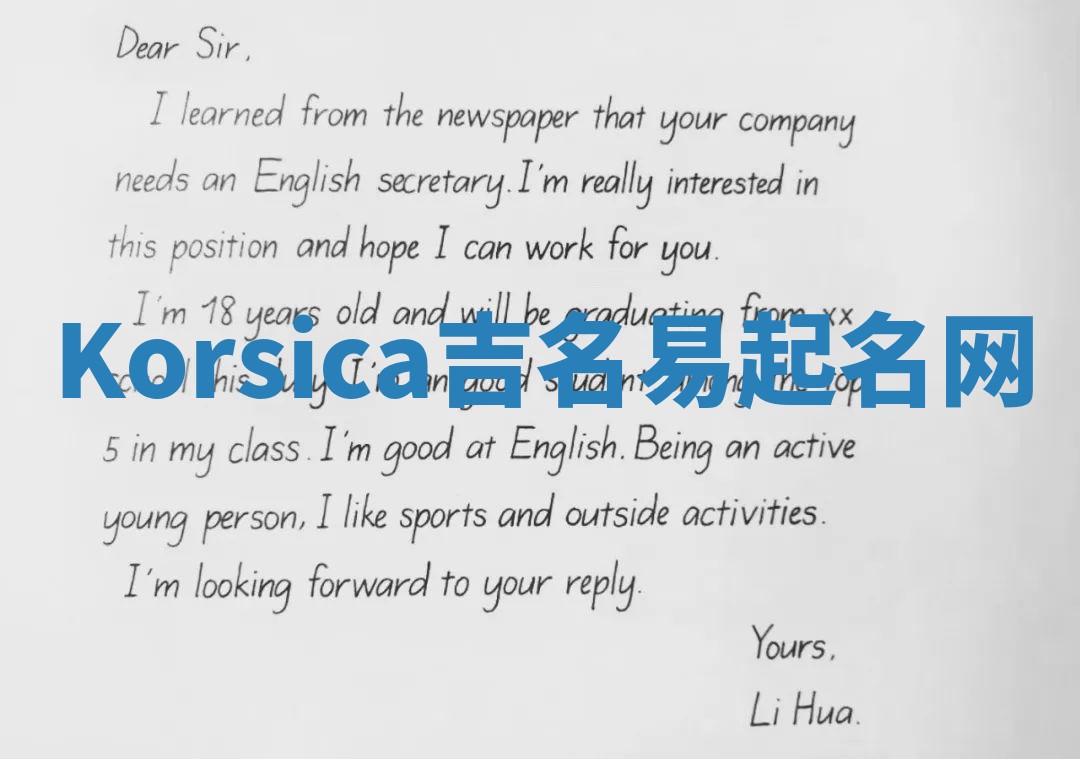 Dear Sir,
I learned from the newspaper that your company
needs an English secretary. I'm really interested in
this position and hope I can work for you.
I'm 18 years old and will be graduating from xx
Korsica吉名易起名网
school this July. I'm an good student among the top
5 in my class. I'm good at English. Being an active
young person, I like sports and outside activities.
I'm looking forward to your reply.
Yours,
Li Hua.